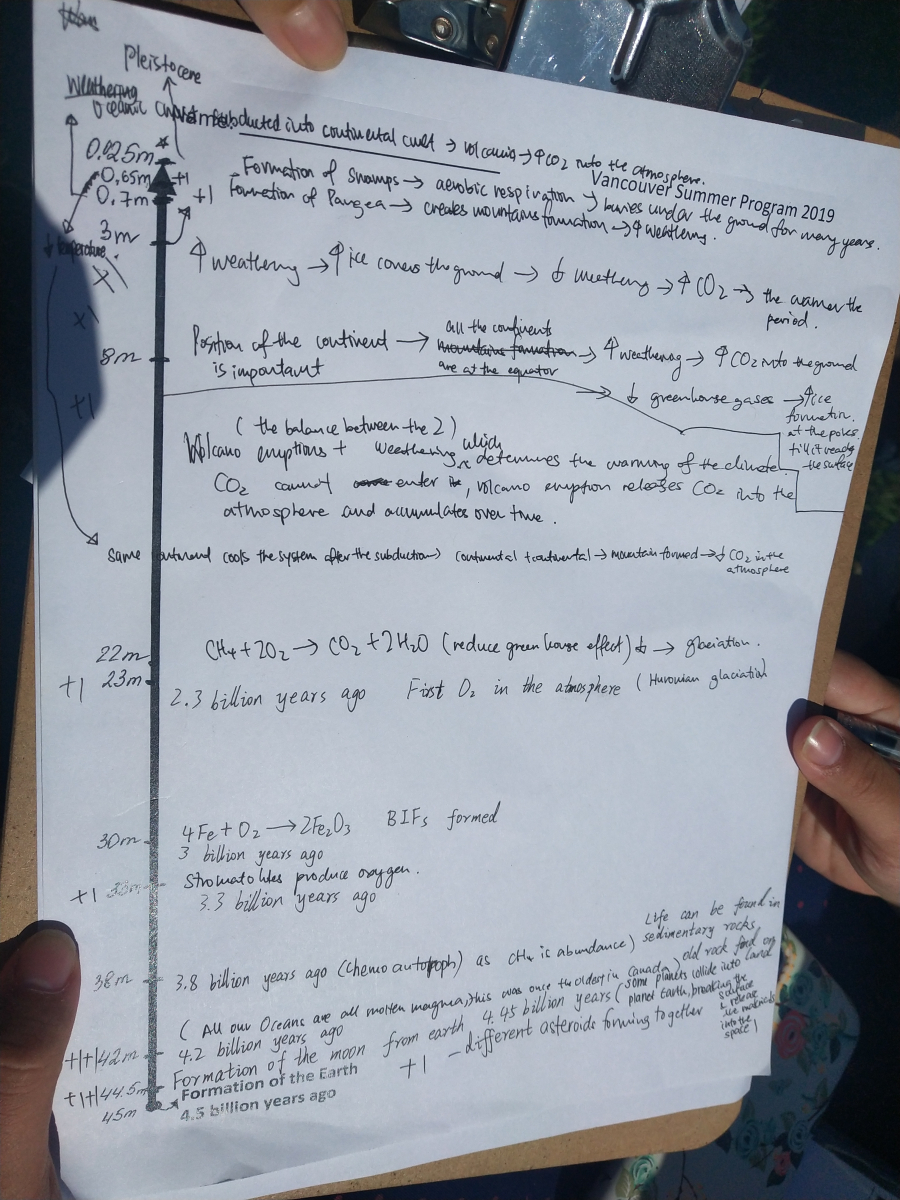 Pleistocene
Weathering
Oceanic subducted into continental cust → volcanis → ↑CO2 into the atmosphere.
Vancouver Summer Program 2019
0.025m
0.65m +1 Formation of Swamps → aerobic respiration → buries under the ground for many years.
0.7m +1 Formation of Pangea → creates mountains formation → ↑ weathering.
3m
↓ temperature
↑ weathering → ↑ ice covers the ground → ↓ weathering → ↑ CO2 → the warmer the period.
8m
Position of the continent → all the continents are at the equator → ↑ weathering → ↑ CO2 into the ground
is important
mountains formation
+1
→ ↓ greenhouse gases → ↑ ice
formation
at the poles
till it
the surface
(the balance between the 2)
Volcano eruptions + weathering which determines the warming of the climate
CO2 cannot enter, volcano eruption releases CO2 into the
atmosphere and accumulates over time.
Same cools the system after the subduction) continental + continental → mountain formed → ↓ CO2 in the
atmosphere
22m CH4 + 2O2 → CO2 + 2H2O (reduce green house effect) ↓ → glaciation.
+1 23m
2.3 billion years ago First O2 in the atmosphere (Huronian glaciation)
30m 4Fe + O2 → 2Fe2O3 BIFs formed
3 billion years ago
Stromatolites produce oxygen.
+1 33m 3.3 billion years ago
Life can be found in
sedimentary rocks
38m 3.8 billion years ago (chemo autotroph) as CH4 is abundance)
(All our Oceans are all molten magma, this was once the oldest in Canada) old rock find on
+1+1 42m 4.2 billion years ago
Formation of the moon from earth 4.45 billion years (some planets collide into land
planet Earth, breaking the
surface
& release
materials
into the
space)
+1 - different asteroids forming together
+1+1 44.5m
45m Formation of the Earth
4.5 billion years ago